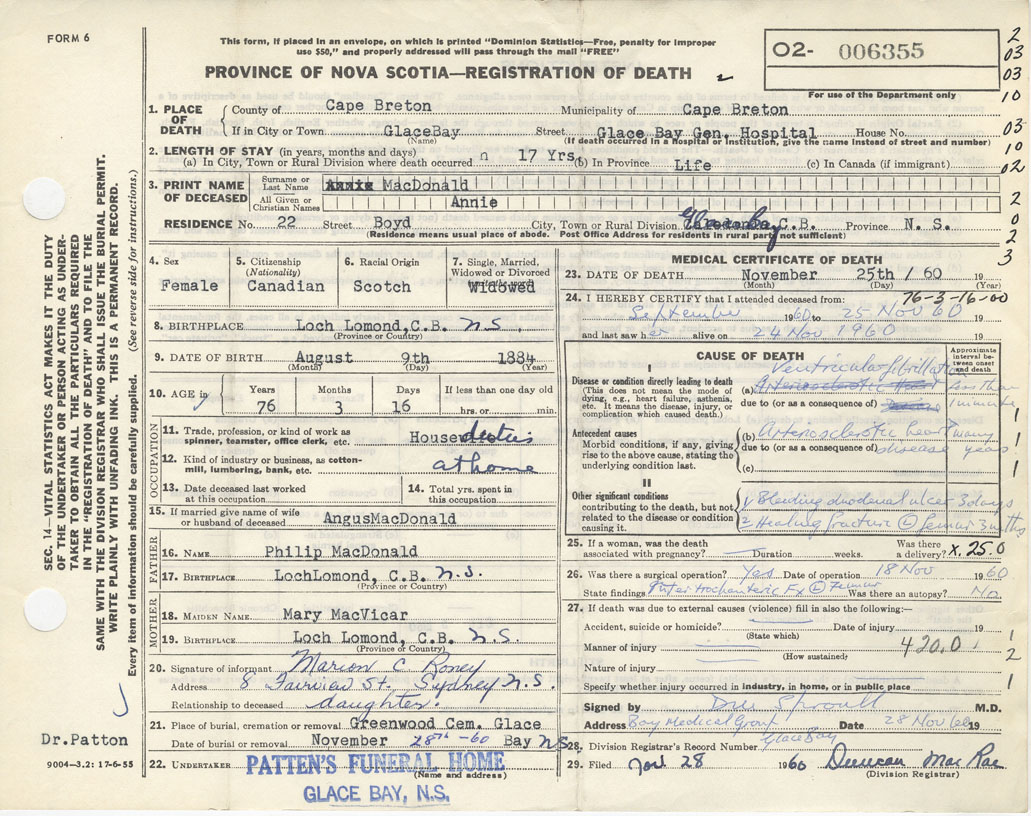 FORM 6
This form, if placed in an envelope, on which is printed "Dominion Statistics—Free, penalty for improper
use $50," and properly addressed will pass through the mail "FREE"
PROVINCE OF NOVA SCOTIA—REGISTRATION OF DEATH
O2- 006355
For use of the Department only
2
03
03
10
03
10
02
2
0
2
3
SEC. 14—VITAL STATISTICS ACT MAKES IT THE DUTY
OF THE UNDERTAKER OR PERSON ACTING AS UNDER-
TAKER TO OBTAIN ALL THE PARTICULARS REQUIRED
IN THE "REGISTRATION OF DEATH" AND TO FILE THE
SAME WITH THE DIVISION REGISTRAR WHO SHALL ISSUE THE BURIAL PERMIT.
WRITE PLAINLY WITH UNFADING INK. THIS IS A PERMANENT RECORD.
Every item of information should be carefully supplied. (See reverse side for instructions.)
1. PLACE OF DEATH
County of Cape Breton Municipality of Cape Breton
If in City or Town GlaceBay Street Glace Bay Gen. Hospital House No.
(Name) (If death occurred in a Hospital or Institution, give the name instead of street and number)
2. LENGTH OF STAY (in years, months and days)
(a) In City, Town or Rural Division where death occurred 17 Yrs. (b) In Province Life (c) In Canada (if immigrant)
3. PRINT NAME OF DECEASED
Surname or Last Name Annie MacDonald
All Given or Christian Names Annie
RESIDENCE No. 22 Street Boyd City, Town or Rural Division Glace Bay C.B. Province N. S.
(Residence means usual place of abode. Post Office Address for residents in rural parts not sufficient)
4. Sex
Female
5. Citizenship
(Nationality)
Canadian
6. Racial Origin
Scotch
7. Single, Married,
Widowed or Divorced
Widowed
8. BIRTHPLACE Loch Lomond, C.B. N.S.
(Province or Country)
9. DATE OF BIRTH August 9th 1884
(Month) (Day) (Year)
10. AGE in Years 76 Months 3 Days 16 If less than one day old hrs. or min.
OCCUPATION
11. Trade, profession, or kind of work as
spinner, teamster, office clerk, etc. House duties
12. Kind of industry or business, as cotton-
mill, lumbering, bank, etc. at home
13. Date deceased last worked
at this occupation
14. Total yrs. spent in
this occupation
15. If married give name of wife
or husband of deceased AngusMacDonald
FATHER
16. NAME Philip MacDonald
17. BIRTHPLACE LochLomond, C.B. N.S.
(Province or Country)
MOTHER
18. MAIDEN NAME Mary MacVicar
19. BIRTHPLACE Loch Lomond, C.B. N.S.
(Province or Country)
20. Signature of informant Marion C. Roney
Address 8 Fairview St. Sydney N.S.
Relationship to deceased daughter.
21. Place of burial, cremation or removal Greenwood Cem. Glace
Date of burial or removal November 28th -60 Bay NS
22. UNDERTAKER PATTEN'S FUNERAL HOME
(Name and address)
GLACE BAY, N.S.
Dr.Patton
9004—3.2: 17-6-55
MEDICAL CERTIFICATE OF DEATH
23. DATE OF DEATH November 25th / 60 19
(Month) (Day) (Year)
24. I HEREBY CERTIFY that I attended deceased from: 76-3-16-00
September 1960 to 25 Nov 60 19
and last saw her alive on 24 Nov 1960
CAUSE OF DEATH
Approximate interval between onset and death
I
Disease or condition directly leading to death
(This does not mean the mode of
dying, e.g., heart failure, asthenia,
etc. It means the disease, injury, or
complication which caused death.)
Ventricular fibrillation
(a) Arteriosclerotic Heart less than
due to (or as a consequence of) Disease 1 minute
Antecedent causes
Morbid conditions, if any, giving
rise to the above cause, stating the
underlying condition last.
(b) Arteriosclerotic heart many
due to (or as a consequence of) disease years
(c)
II
Other significant conditions
contributing to the death, but not
related to the disease or condition
causing it.
1 Bleeding duodenal ulcer 3 days
2 Healing fracture femur 3 months
25. If a woman, was the death
associated with pregnancy? Duration weeks. Was there
a delivery? X. 25.0
26. Was there a surgical operation? Yes Date of operation 18 Nov 1960
State findings Inter trochanteric Fx femur Was there an autopsy? No
27. If death was due to external causes (violence) fill in also the following:—
Accident, suicide or homicide? Date of injury 19
(State which)
Manner of injury 420.0
(How sustained)
Nature of injury
Specify whether injury occurred in industry, in home, or in public place
Signed by Sproull M.D.
Address Bay Medical Group Date 28 Nov 60 19
Glace Bay
28. Division Registrar's Record Number
29. Filed Nov 28 1960 Duncan MacRae
(Division Registrar)
1
1
1
1
2
1